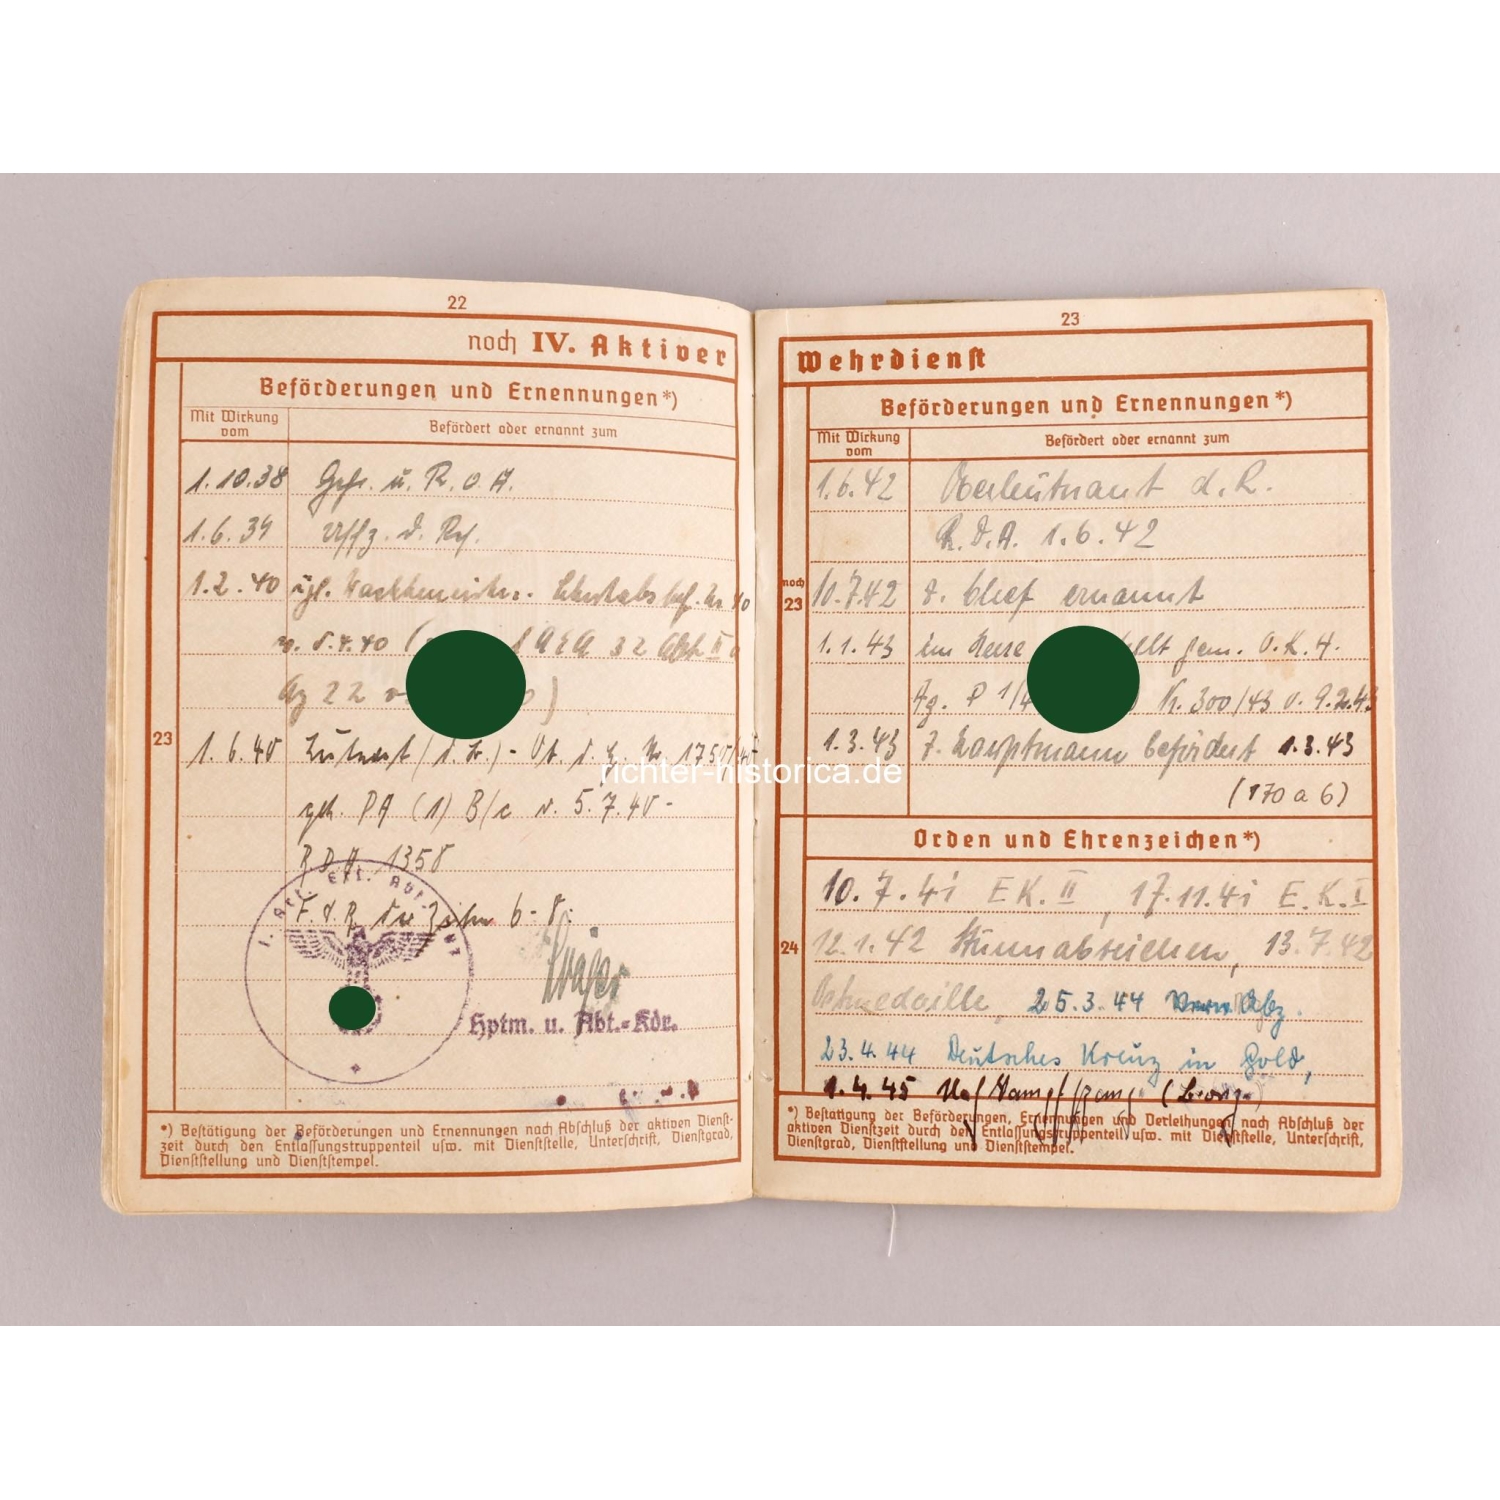 22
noch IV. Aktiver
Beförderungen und Ernennungen*)
Mit Wirkung vom
Befördert oder ernannt zum
1.10.38 Gefr. u. R.O.A.
1.6.39 Uffz. d. Rs.
1.2.40 zgl. Wachtmeister.
v. 5.4.40 ( A E A 32 Abt II a
Az 22 v. )
23
1.6.40 Leutnant (d. R.) - 1750/40
geh. PA (1) B/c v. 5.7.40 -
R.D.A. 1358
F. d. R. 6-8.
I. Art. Ers. Abt.
Hptm. u. Abt.-Kdr.
*) Bestätigung der Beförderungen und Ernennungen nach Abschluß der aktiven Dienst-
zeit durch den Entlassungstruppenteil usw. mit Dienststelle, Unterschrift, Dienstgrad,
Dienststellung und Dienststempel.
23
Wehrdienst
Beförderungen und Ernennungen*)
Mit Wirkung vom
Befördert oder ernannt zum
1.6.42 Oberleutnant d. R.
R.D.A. 1.6.42
noch 23
10.7.42 z. Chef ernannt
1.1.43 im Heere gem. O.K.H.
Ag. P 1/ Nr. 300/43 v. 9.2.43
1.3.43 z. Hauptmann befördert 1.3.43
(170 a 6)
Orden und Ehrenzeichen*)
10.7.41 EK. II, 17.11.41 E.K. I
24
12.1.42 Sturmabzeichen, 13.7.42
Ostmedaille, 25.3.44 Verw. Abz.
23.4.44 Deutsches Kreuz in Gold,
1.4.45 Nahkampfspange (Bronze)
*) Bestätigung der Beförderungen, Ernennungen und Verleihungen nach Abschluß der
aktiven Dienstzeit durch den Entlassungstruppenteil usw. mit Dienststelle, Unterschrift,
Dienstgrad, Dienststellung und Dienststempel.
richter-historica.de